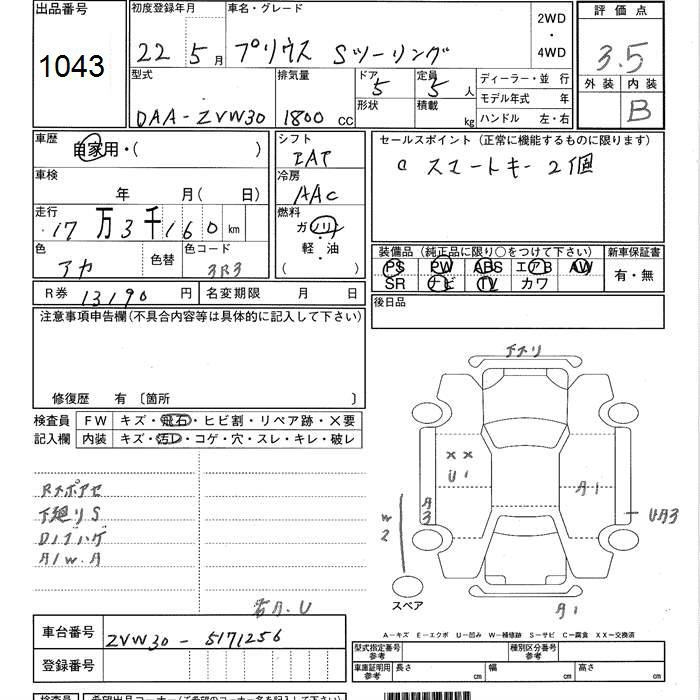 出品番号 初度登録年月 車名・グレード 2WD・4WD 評価点
1043 22年 5月 プリウス Sツーリング 3.5
型式 排気量 ドア 形状 定員 積載 ディーラー・並行 外装 内装
DAA-ZVW30 1800cc 5 5人 kg モデル年式 年 B
ハンドル 左・右
車歴 自家用・( ) シフト セールスポイント(正常に機能するものに限ります)
IAT スマートキー2個
車検 年 月(日) 冷房 AAC
走行 17万3千160km 燃料 ガソリン 軽・油 ( )
色 アカ 色替 色コード 3R3
装備品(純正品に限り○をつけて下さい) 新車保証書
PS PW ABS エアB AW 有・無
SR ナビ TV カワ
R券 13190円 名変期限 月 日 後日品
注意事項申告欄(不具合内容等は具体的に記入して下さい)
修復歴 有〔箇所 〕
検査員 記入欄 FW キズ・飛石・ヒビ割・リペア跡・×要
内装 キズ・汚レ・コゲ・穴・スレ・キレ・破レ
下廻りS
A1 W.A
右A.U
下スリ
××
U1
A3
W2
A1
UA3
A1
スペア
A-キズ E-エクボ U-凹み W-補修跡 S-サビ C-腐食 XX-交換済
車台番号 ZVW30-5171256
登録番号
型式指定番号 参考 種別区分番号 参考
車庫証明用 参考 長さ cm 幅 cm 高さ cm
検査員 希望出品コーナー(ご希望のコーナー名を記入して下さい)